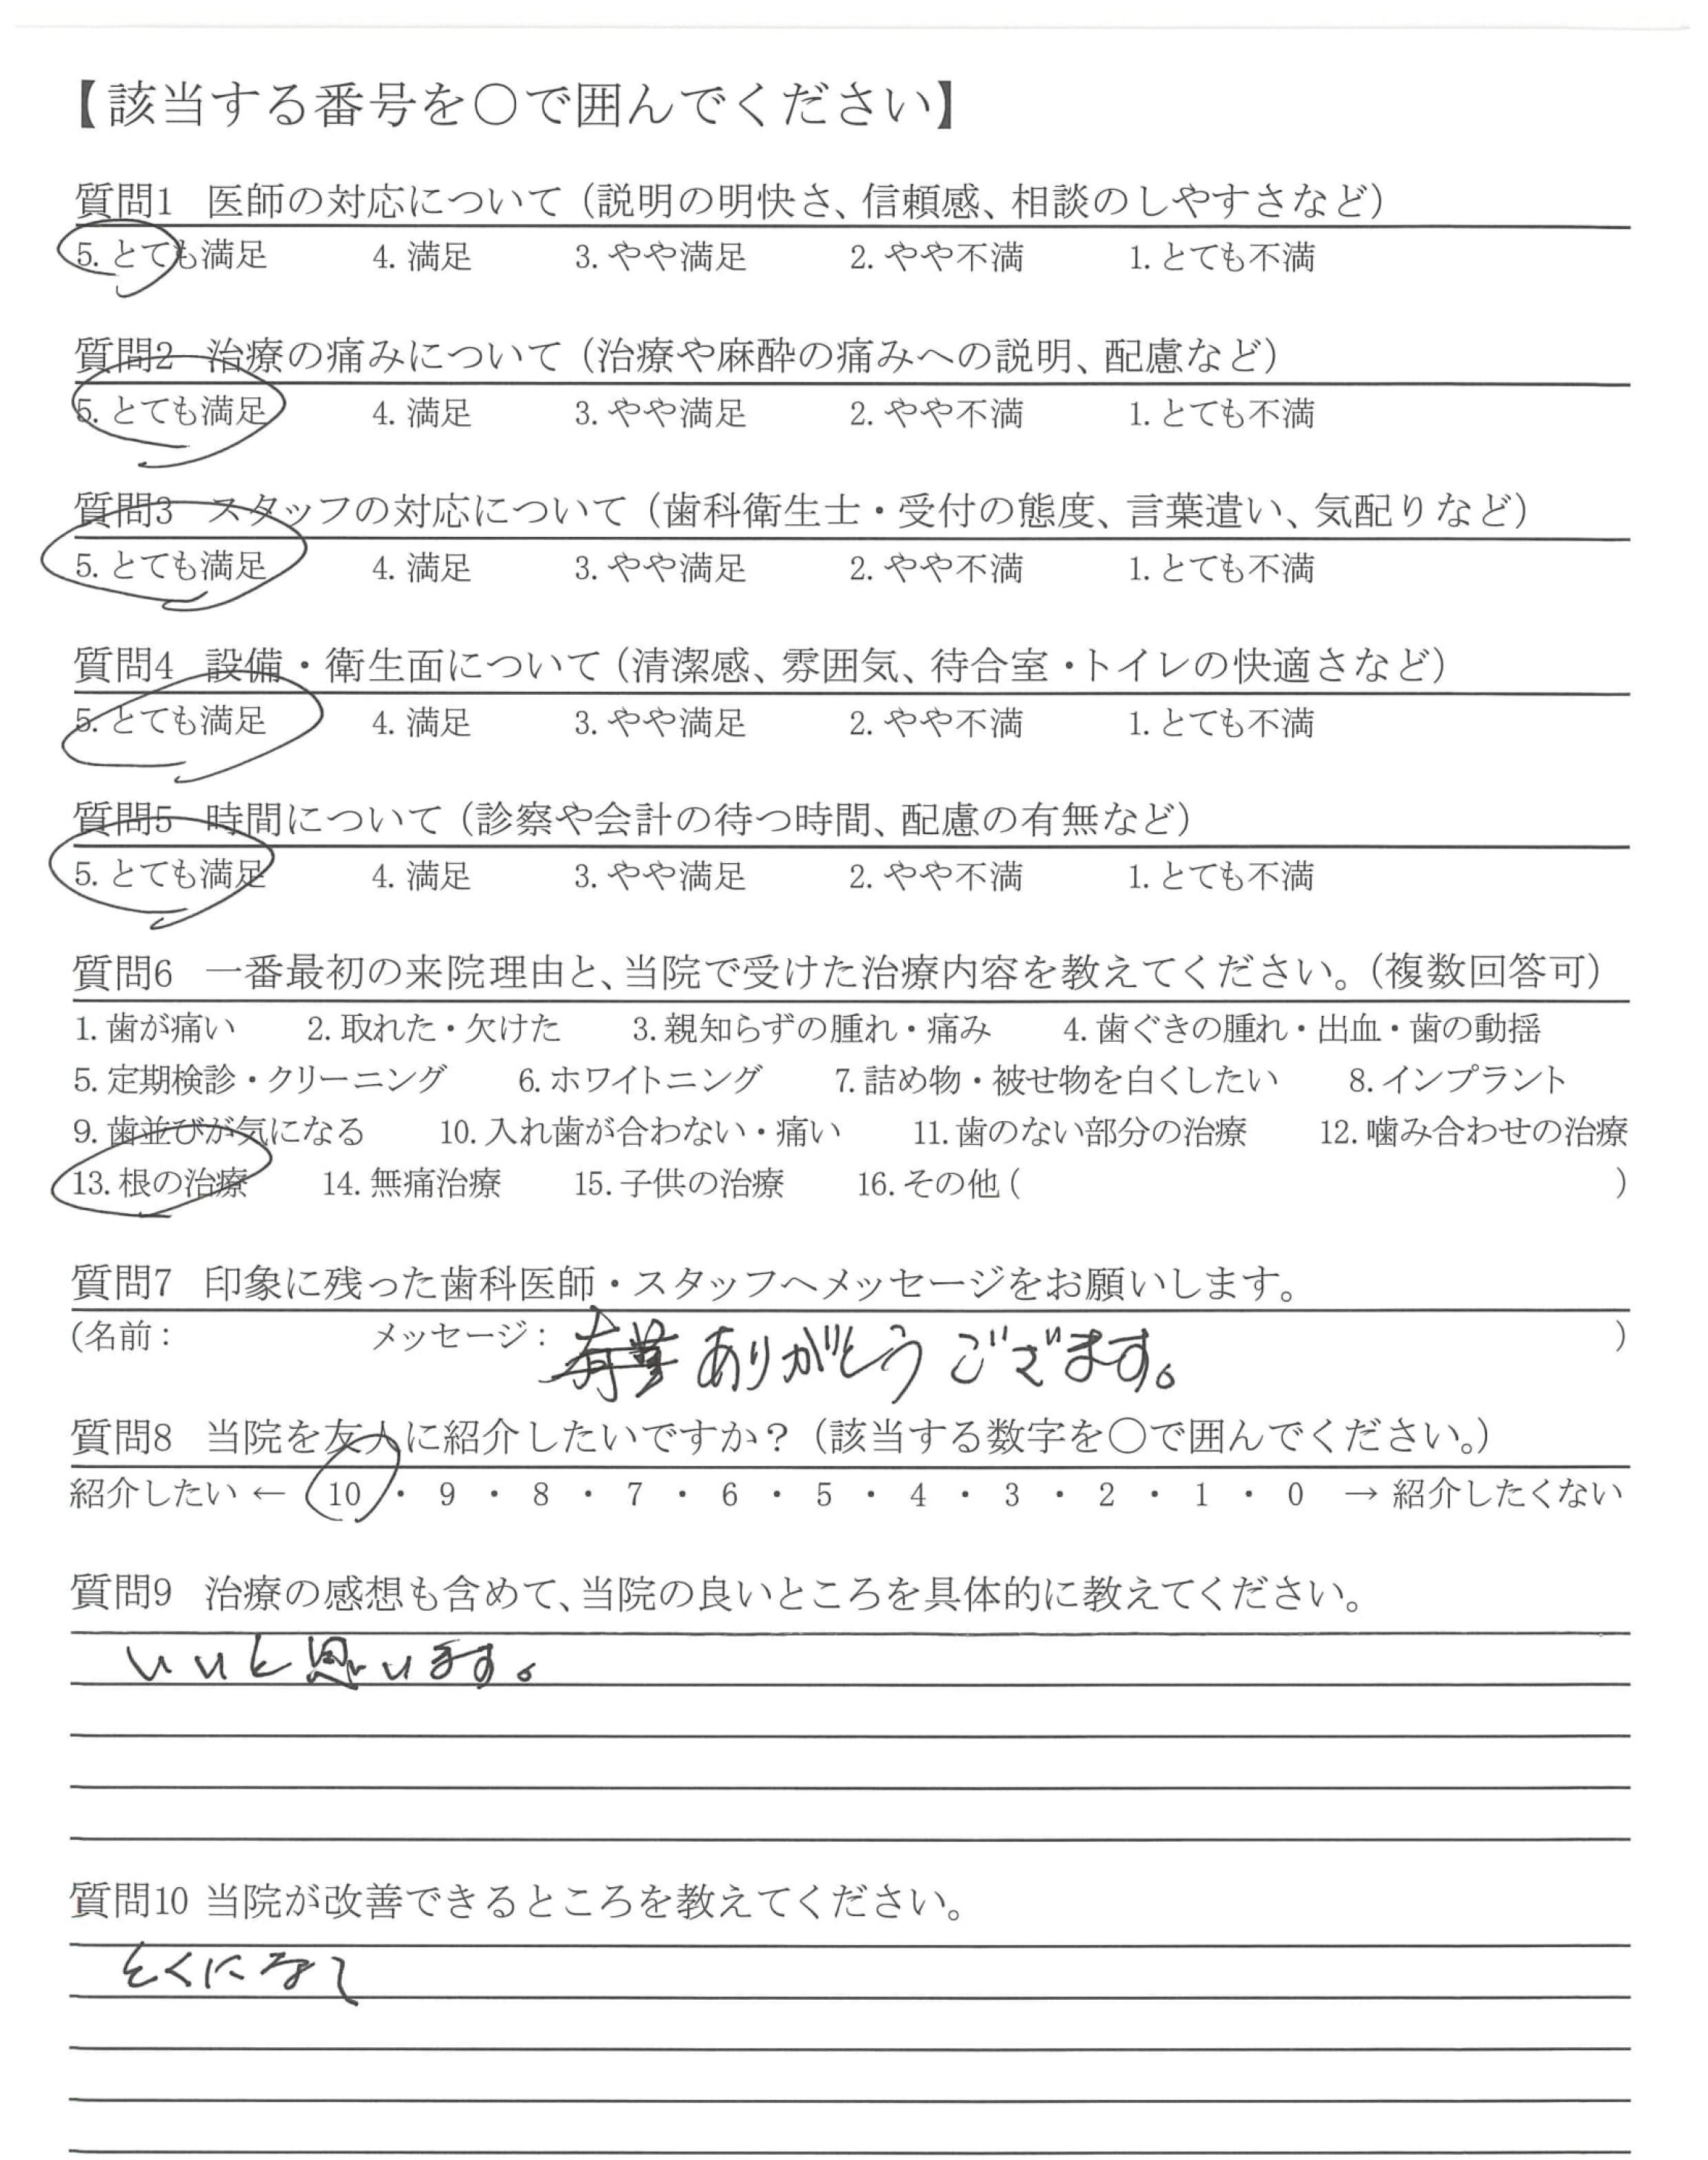 【該当する番号を○で囲んでください】
質問1 医師の対応について（説明の明快さ、信頼感、相談のしやすさなど）
5. とても満足 4. 満足 3. やや満足 2. やや不満 1. とても不満
質問2 治療の痛みについて（治療や麻酔の痛みへの説明、配慮など）
5. とても満足 4. 満足 3. やや満足 2. やや不満 1. とても不満
質問3 スタッフの対応について（歯科衛生士・受付の態度、言葉遣い、気配りなど）
5. とても満足 4. 満足 3. やや満足 2. やや不満 1. とても不満
質問4 設備・衛生面について（清潔感、雰囲気、待合室・トイレの快適さなど）
5. とても満足 4. 満足 3. やや満足 2. やや不満 1. とても不満
質問5 時間について（診察や会計の待つ時間、配慮の有無など）
5. とても満足 4. 満足 3. やや満足 2. やや不満 1. とても不満
質問6 一番最初の来院理由と、当院で受けた治療内容を教えてください。（複数回答可）
1. 歯が痛い 2. 取れた・欠けた 3. 親知らずの腫れ・痛み 4. 歯ぐきの腫れ・出血・歯の動揺
5. 定期検診・クリーニング 6. ホワイトニング 7. 詰め物・被せ物を白くしたい 8. インプラント
9. 歯並びが気になる 10. 入れ歯が合わない・痛い 11. 歯のない部分の治療 12. 噛み合わせの治療
13. 根の治療 14. 無痛治療 15. 子供の治療 16. その他（ ）
質問7 印象に残った歯科医師・スタッフへメッセージをお願いします。
（名前： メッセージ： ありがとうござます。 ）
質問8 当院を友人に紹介したいですか？（該当する数字を○で囲んでください。）
紹介したい ← 10 ・ 9 ・ 8 ・ 7 ・ 6 ・ 5 ・ 4 ・ 3 ・ 2 ・ 1 ・ 0 → 紹介したくない
質問9 治療の感想も含めて、当院の良いところを具体的に教えてください。
いいと思います。
質問10 当院が改善できるところを教えてください。
とくになし